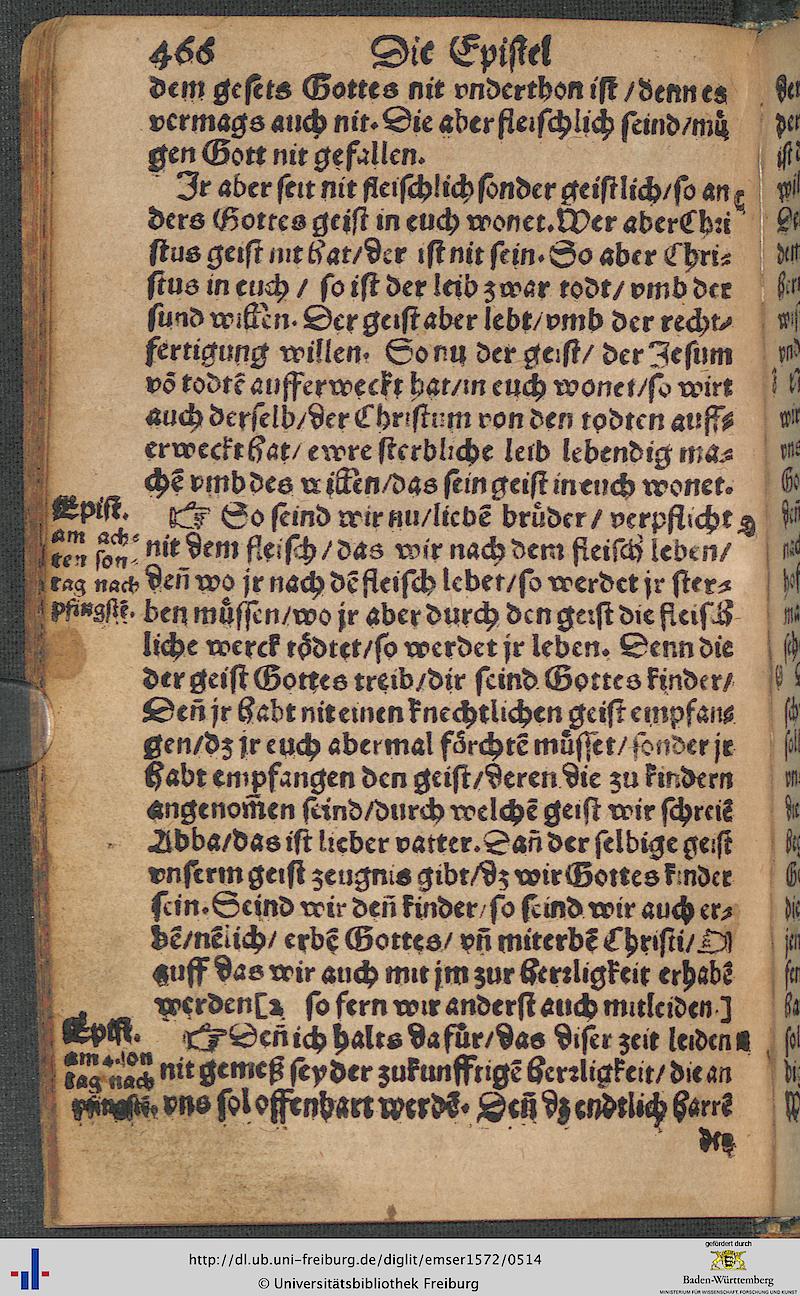 466 Die Epistel
dem gesets Gottes nit vnderthon ist / denn es
vermags auch nit. Die aber fleischlich seind/mů
gen Gott nit gefallen.
Jr aber seit nit fleischlich sonder geistlich/so an
ders Gottes geist in euch wonet. Wer aber Chri
stus geist nit hat/der ist nit sein. So aber Chri⸗
stus in euch / so ist der leib zwar todt/ vmb der
sund willen. Der geist aber lebt/vmb der recht⸗
fertigung willen. So nu der geist/ der Jesum
võ todtẽ aufferweckt hat/in euch wonet/so wirt
auch derselb/der Christum von den todten auff⸗
erweckt hat/ ewre sterbliche leib lebendig ma⸗
chẽ vmb des willen/das sein geist in euch wonet.
Epist.
am ach⸗
ten son⸗
tag nach
pfingstẽ.
☞ So seind wir nu/liebẽ brůder / verpflicht
nit dem fleisch / das wir nach dem fleisch leben/
deñ wo jr nach dẽ fleisch lebet/so werdet jr ster⸗
ben můssen/wo jr aber durch den geist die fleisch
liche werck tödtet/so werdet jr leben. Denn die
der geist Gottes treib/dir seind Gottes kinder/
Deñ jr habt nit einen knechtlichen geist empfan⸗
gen/dz jr euch abermal förchtẽ můsset/ sonder jr
habt empfangen den geist/deren die zu kindern
angenom̃en seind/durch welchẽ geist wir schreiẽ
Abba/das ist lieber vatter. Dañ der selbige geist
vnserm geist zeugnis gibt/dz wir Gottes kinder
sein. Seind wir deñ kinder/so seind wir auch er⸗
bẽ/nẽlich/ erbẽ Gottes/ vñ miterbẽ Christi/
auff das wir auch mit jm zur herrligkeit erhabẽ
werden[ so fern wir anderst auch mitleiden.]
Epist.
am 4. son
tag nach
pfingstẽ.
☞ Deñ ich halts dafůr/das diser zeit leiden
nit gemeß sey der zukunfftigẽ herrligkeit/ die an
vns sol offenbart werdẽ. Deñ dz endtlich harrẽ
der
http://dl.ub.uni-freiburg.de/diglit/emser1572/0514
© Universitätsbibliothek Freiburg
gefördert durch
Baden-Württemberg
MINISTERIUM FÜR WISSENSCHAFT, FORSCHUNG UND KUNST